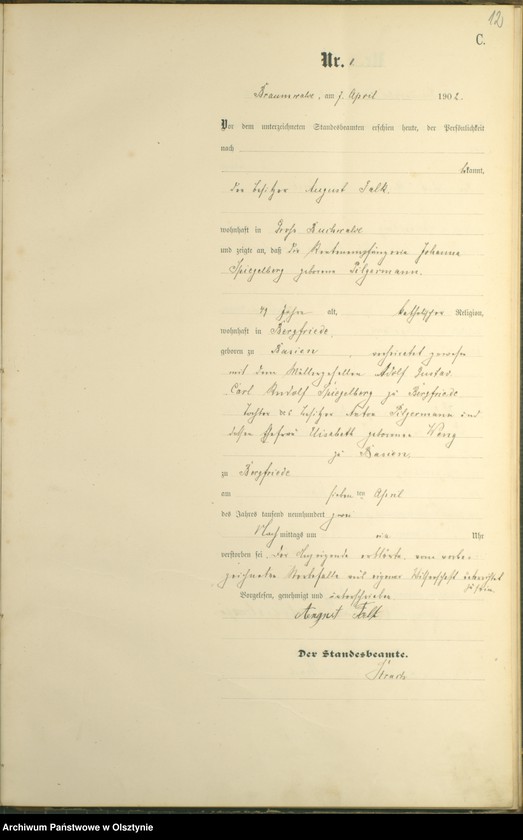 12
C.
Nr.
Braunswalde, am 7. April 1902.
Vor dem unterzeichneten Standesbeamten erschien heute, der Persönlichkeit
nach
bekannt,
der Besitzer August Falk.
wohnhaft in Groß Buchwalde
und zeigte an, daß die Rentenempfängerin Johanna
Spiegelberg geborene Pilgermann.
Jahre alt, katholischer Religion,
wohnhaft in Bergfriede,
geboren zu Basien, verheiratet gewesen
mit dem Müllergesellen Adolf Gustav
Carl Rudolf Spiegelberg zu Bergfriede
Tochter des Besitzer Anton Pilgermann und
dessen Ehefrau Elisabeth geborenen
zu Basien.
zu Bergfriede
am sieben ten April
des Jahres tausend neunhundert zwei
Nach mittags um ein Uhr
verstorben sei. Der Anzeigende erklärte, vom vorbe-
zeichneten Sterbefalle aus eigener Wissenschaft unterrichtet
zu sein.
Vorgelesen, genehmigt und unterschrieben
August Falk
Der Standesbeamte.
Archiwum Państwowe w Olsztynie